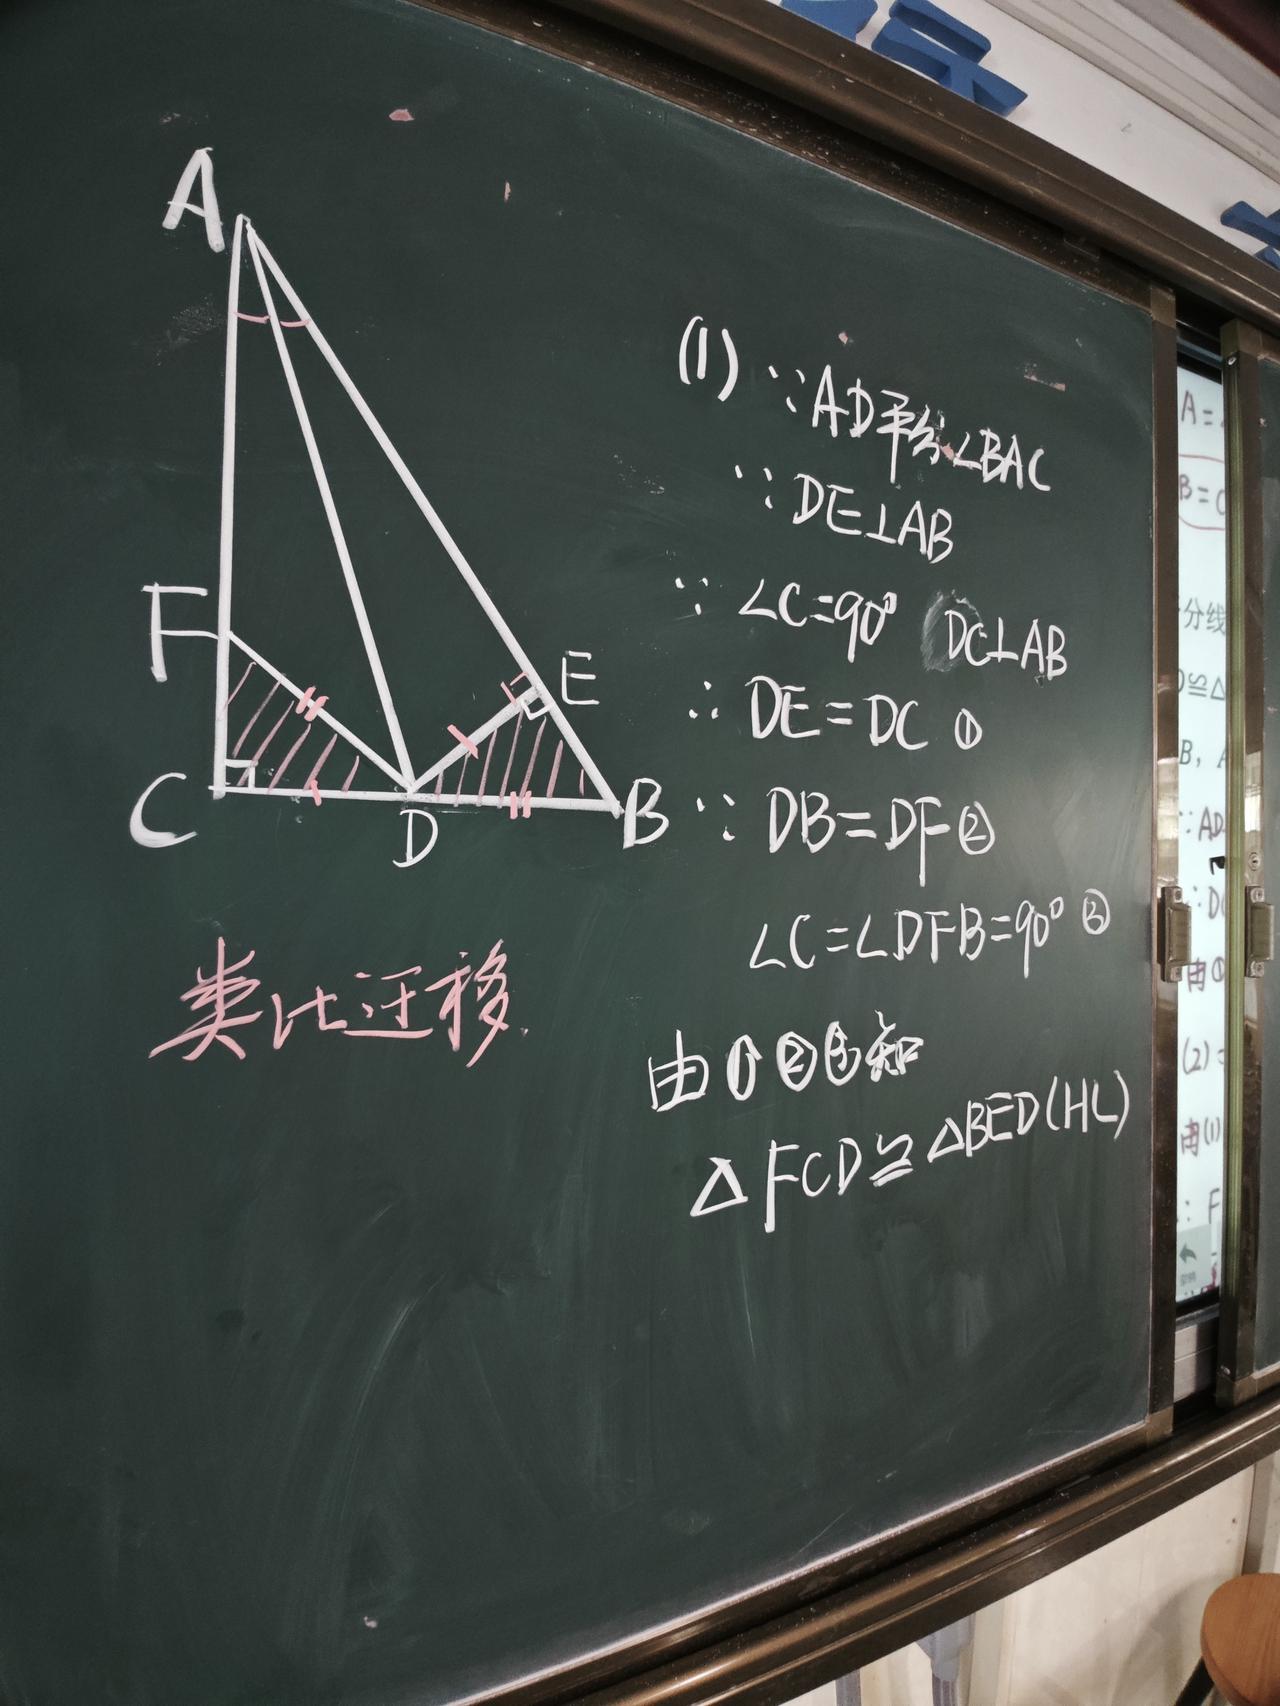 A
F
E
C
D
B
类比迁移
(1) ∵AD平分∠BAC
∵DE⊥AB
∵ ∠C=90° DC⊥AB
∴ DE=DC ①
∵ DB=DF②
∠C=∠DFB=90° ③
由①②③知
△FCD≌△BED(HL)
A=
B=
分线
≌△
B,
∵AD
DC
由①
(2)
由(1)
F